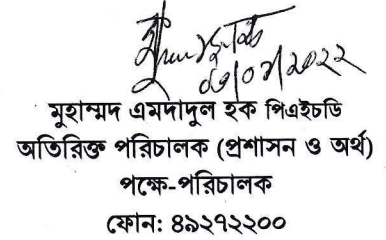 মুহাম্মদ এমদাদুল হক পিএইচডি
অতিরিক্ত পরিচালক (প্রশাসন ও অর্থ)
পক্ষে-পরিচালক
ফোন: ৪৯২৭২২০০